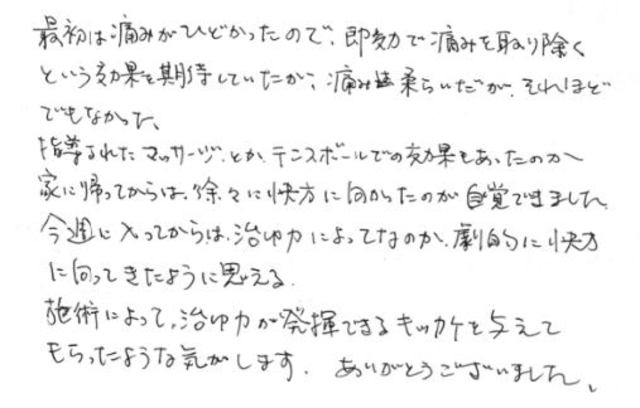 最初は痛みがひどかったので、即効で痛みを取り除く
という効果を期待していたが、痛みは柔らいだが、それほど
でもなかった、
指導されたマッサージとか、テニスボールでの効果もあったのか
家に帰ってからは、徐々に快方に向かったのが自覚できました。
今週に入ってからは、治ゆ力によってなのか、劇的に快方
に向ってきたように思える.
施術によって、治ゆ力が発揮できるキッカケを与えて
もらったような気がします. ありがとうございました。